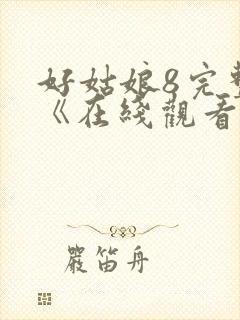 好姑娘8完整
《在綫觀看
嚴笛舟